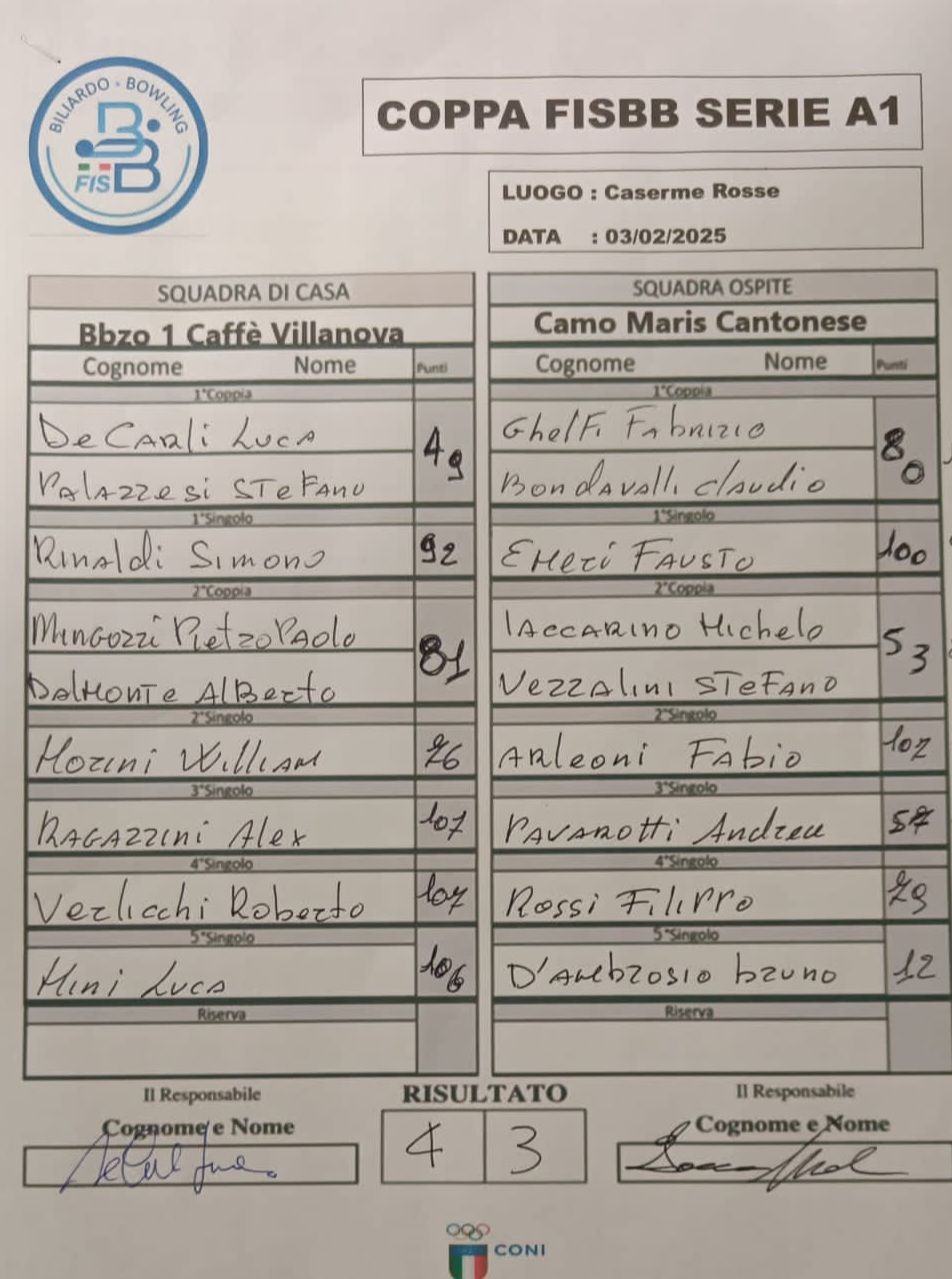 BILIARDO - BOWLING
FISBB
COPPA FISBB SERIE A1
LUOGO : Caserme Rosse
DATA : 03/02/2025
SQUADRA DI CASA
Bbzo 1 Caffè Villanova
Cognome Nome Punti
1°Coppia
De Carli Luca 49
Palazzesi Stefano
1°Singolo
Rinaldi Simone 92
2°Coppia
Mingozzi PietroPaolo 81
Dalmonte Alberto
2°Singolo
Morini William 76
3°Singolo
Ragazzini Alex 107
4°Singolo
Verlicchi Roberto 107
5°Singolo
Mini Luca 106
Riserva
SQUADRA OSPITE
Camo Maris Cantonese
Cognome Nome Punti
1°Coppia
Ghelfi Fabrizio 80
Bondavalli Claudio
1°Singolo
Emeri Fausto 100
2°Coppia
Iaccarino Michele 53
Vezzalini Stefano
2°Singolo
Arleoni Fabio 102
3°Singolo
Pavarotti Andrea 57
4°Singolo
Rossi Filippo 79
5°Singolo
D'Ambrosio Bruno 12
Riserva
Il Responsabile
Cognome e Nome
RISULTATO
4 3
Il Responsabile
Cognome e Nome
CONI